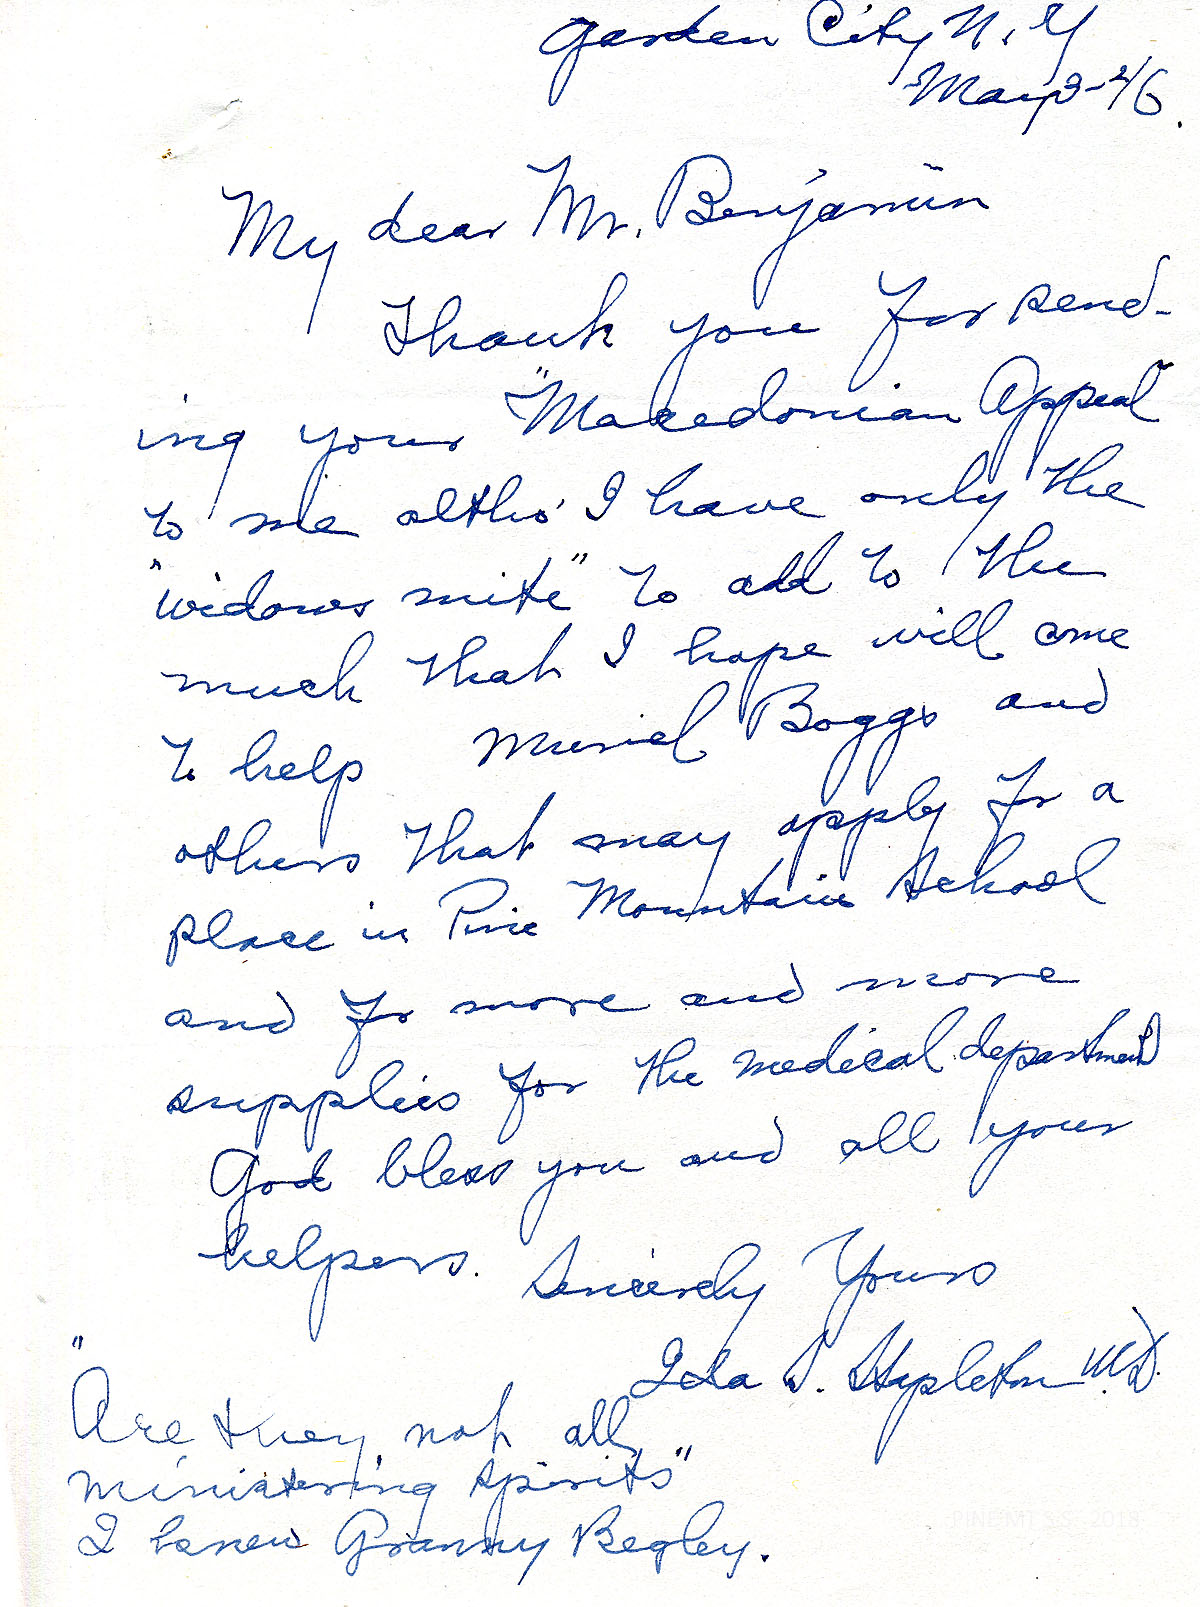 Garden City N.Y
May 3-46.
My dear Mr. Benjamin
Thank you for send-
ing your "Macedonian Appeal"
to me altho' I have only the
"widows mite" to add to the
much that I hope will come
to help Muriel Boggs and
others that may apply for a
place in Pine Mountain School
and for more and more
supplies for the medical department
God bless you and all your
helpers. Sincerely Yours
Ida S. Stapleton M.D.
"Are they not all
ministering spirits"
I knew Granny Begley.